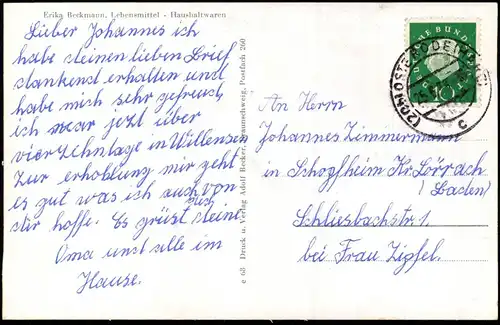 Erika Berkmann, Lebensmittel - Haushaltwaren
Lieber Johannes ich
habe deinen lieben Brief
dankend erhalten und
habe mich sehr gefreut,
ich war jetzt über
vierzehntage in Willensen
zur erhohlung mir geht
es gut was ich auch von
dir hoffe. Es grüst dich deine
Oma und alle im
Hause.
e 68 Druck u. Verlag Adolf Becker, Braunschweig, Postfach 260
DEUTSCHE BUNDESPOST
10
An Herrn
Johannes Zimmermann
in Schopfheim Kr. Lörrach
(Baden)
Schliesbachstr. 1
bei Frau Zipfel.